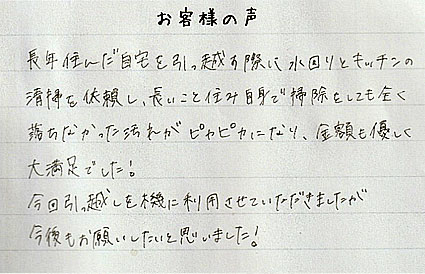 お客様の声
長年住んだ自宅を引っ越す際に水回りとキッチンの
清掃を依頼し、長いこと住み自身で掃除をしても全く
落ちなかった汚れがピカピカになり、金額も優しく
大満足でした!
今回引っ越しを機に利用させていただきましたが
今後もお願いしたいと思いました!